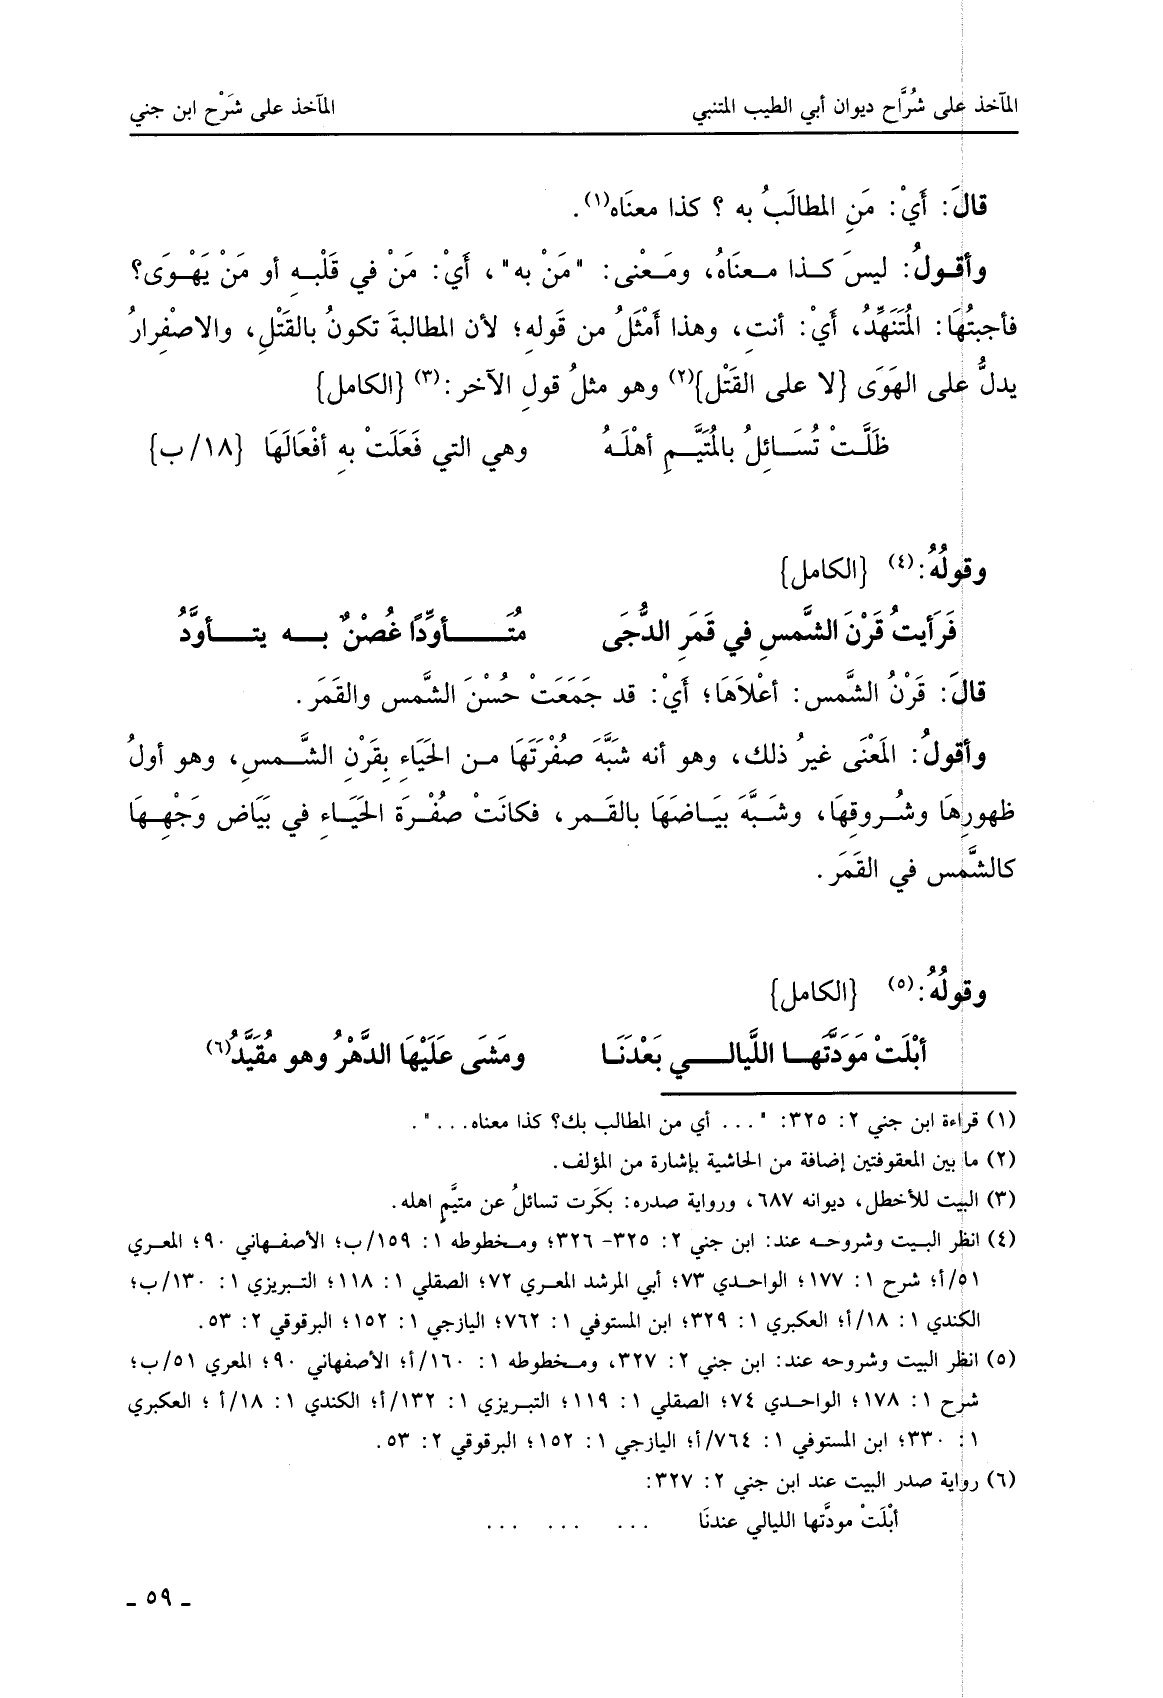 المآخذ على شُرَّاح ديوان أبي الطيب المتنبي المآخذ على شَرْح ابن جني
قالَ: أَيْ: مَنِ المطالَبُ به ؟ كذا معنَاه(١).
وأقـولُ: ليسَ كـذا مـعنَاهُ، ومَـعْنى: "مَنْ به"، أَيْ: مَنْ في قَلْبـهِ أو مَنْ يَهْـوَى؟
فأجبتُهَا: المُتَنَهِّدُ، أَيْ: أنتِ، وهذا أَمْثَلُ من قَولهِ؛ لأن المطالبةَ تكونُ بالقَتْلِ، والاصْفرارُ
يدلُّ على الهَوَى {لا على القَتْل}(٢) وهو مثلُ قولِ الآخر:(٣) {الكامل}
ظَلَّـتْ تُسَـائِلُ بالمُتَيَّـمِ أهْلَـهُ وهي التي فَعَلَتْ بهِ أفْعَالَهَا {١٨/ب}
وقولُهُ:(٤) {الكامل}
فَرَأيتُ قَرْنَ الشَّمسِ في قَمَرِ الدُّجَى مُتَـــأوِّدًا غُصْنٌ بــه يتــأوَّدُ
قالَ: قَرْنُ الشَّمس: أعْلاَهَا؛ أَيْ: قد جَمَعَتْ حُسْنَ الشَّمس والقَمَرَ.
وأقولُ: المَعْنَى غيرُ ذلك، وهو أنه شَبَّهَ صُفْرَتَهَا مـن الحَيَاءِ بِقَرْنِ الشَّــمسِ، وهو أولُ
ظهورِهَا وشُـروقِهَا، وشَـبَّهَ بَيَـاضَهَا بالقَـمر، فكانَتْ صُفْـرَة الحَيَـاءِ في بَيَاض وَجْهِـهَا
كالشَّمس في القَمَرَ.
وقولُهُ:(٥) {الكامل}
أبْلَتْ مَوَدَّتَهـا اللَّيالــي بَعْدَنَـا ومَشَى عَلَيْهَا الدَّهْرُ وهو مُقَيَّدُ(٦)
(١) قراءة ابن جني ٢: ٣٢٥: "... أي من المطالب بك؟ كذا معناه...".
(٢) ما بين المعقوفتين إضافة من الحاشية بإشارة من المؤلف.
(٣) البيت للأخطل، ديوانه ٦٨٧، ورواية صدره: بَكَرت تسائلُ عن متيَّمٍ اهله.
(٤) انظر البـيت وشروحـه عند: ابن جني ٢: ٣٢٥- ٣٢٦؛ ومـخطوطه ١: ١٥٩/ب؛ الأصفـهاني ٩٠؛ المعري
٥١/أ؛ شرح ١: ١٧٧؛ الواحـدي ٧٣؛ أبي المرشد المعـري ٧٢؛ الصقلي ١: ١١٨؛ التبـريزي ١: ١٣٠/ب؛
الكندي ١: ١٨/أ؛ العكبري ١: ٣٢٩؛ ابن المستوفي ١: ٧٦٢؛ اليازجي ١: ١٥٢؛ البرقوقي ٢: ٥٣.
(٥) انظر البيت وشروحه عند: ابن جني ٢: ٣٢٧، ومـخطوطه ١: ١٦٠/أ؛ الأصفهاني ٩٠؛ المعري ٥١/ب؛
شرح ١: ١٧٨؛ الواحـدي ٧٤؛ الصقلي ١: ١١٩؛ التبـريزي ١: ١٣٢/أ؛ الكندي ١: ١٨/أ ؛ العكبري
١: ٣٣٠؛ ابن المستوفي ١: ٧٦٤/أ؛ اليازجي ١: ١٥٢؛ البرقوقي ٢: ٥٣.
(٦) رواية صدر البيت عند ابن جني ٢: ٣٢٧:
أبْلَتْ مودَّتها الليالي عندنَا ... ... ...
ـ ٥٩ ـ